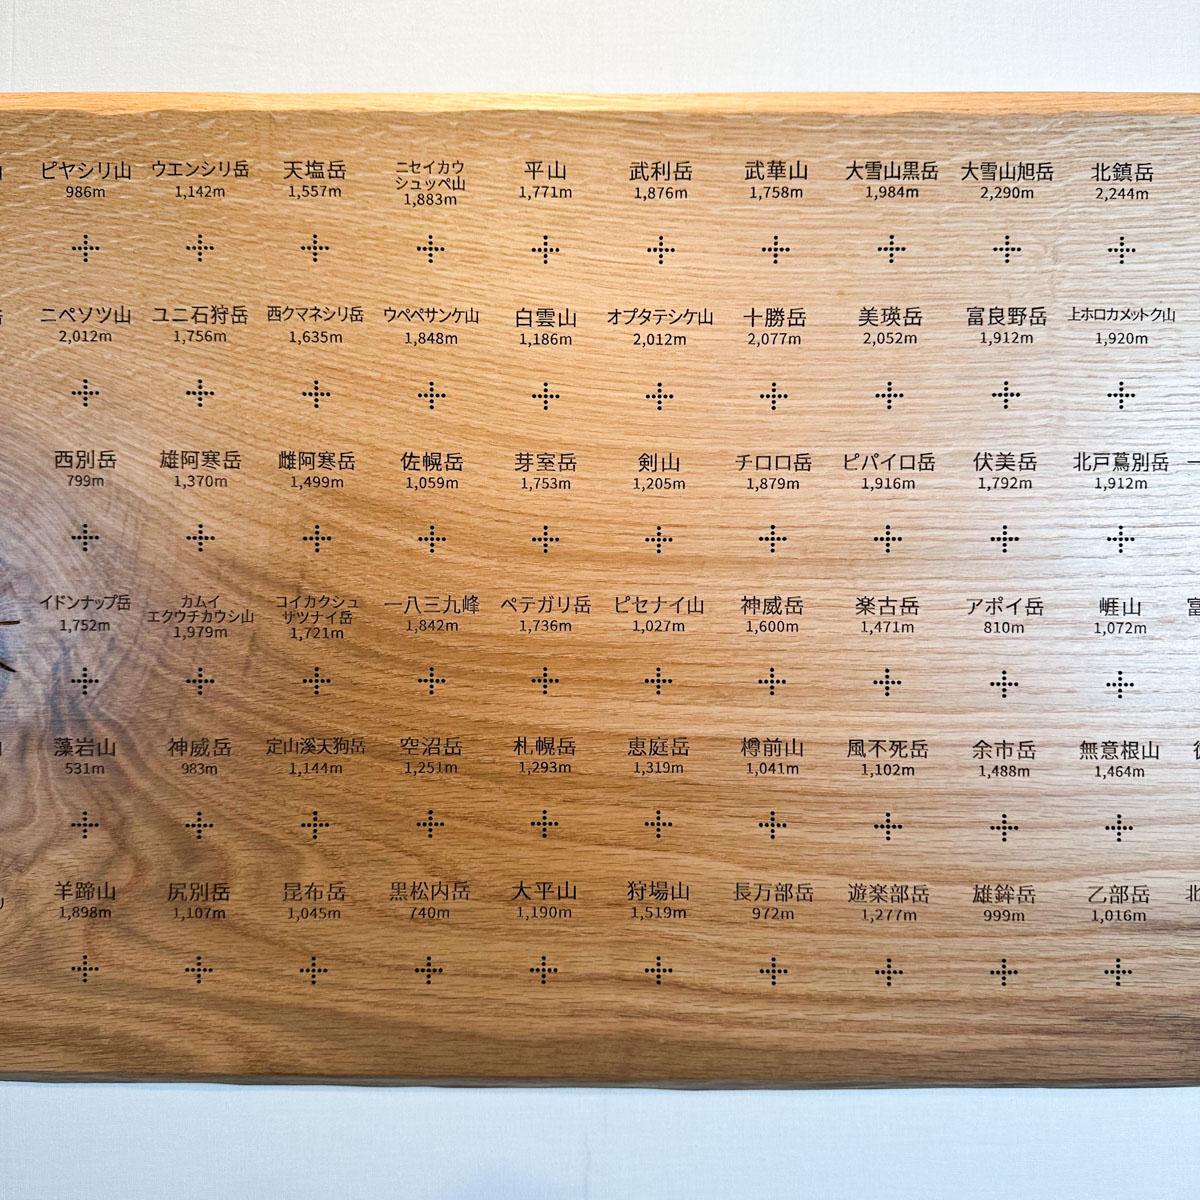 ピヤシリ山 ウエンシリ岳 天塩岳 ニセイカウシュッペ山 平山 武利岳 武華山 大雪山黒岳 大雪山旭岳 北鎮岳
986m 1,142m 1,557m 1,883m 1,771m 1,876m 1,758m 1,984m 2,290m 2,244m
ニペソツ山 ユニ石狩岳 西クマネシリ岳 ウペペサンケ山 白雲山 オプタテシケ山 十勝岳 美瑛岳 富良野岳 上ホロカメットク山
2,012m 1,756m 1,635m 1,848m 1,186m 2,012m 2,077m 2,052m 1,912m 1,920m
西別岳 雄阿寒岳 雌阿寒岳 佐幌岳 芽室岳 剣山 チロロ岳 ピパイロ岳 伏美岳 北戸蔦別岳
799m 1,370m 1,499m 1,059m 1,753m 1,205m 1,879m 1,916m 1,792m 1,912m
イドンナップ岳 カムイエクウチカウシ山 コイカクシュサツナイ岳 一八三九峰 ペテガリ岳 ピセナイ山 神威岳 楽古岳 アポイ岳 崕山
1,752m 1,979m 1,721m 1,842m 1,736m 1,027m 1,600m 1,471m 810m 1,072m
藻岩山 神威岳 定山溪天狗岳 空沼岳 札幌岳 恵庭岳 樽前山 風不死岳 余市岳 無意根山
531m 983m 1,144m 1,251m 1,293m 1,319m 1,041m 1,102m 1,488m 1,464m
羊蹄山 尻別岳 昆布岳 黒松内岳 大平山 狩場山 長万部岳 遊楽部岳 雄鉾岳 乙部岳
1,898m 1,107m 1,045m 740m 1,190m 1,519m 972m 1,277m 999m 1,016m